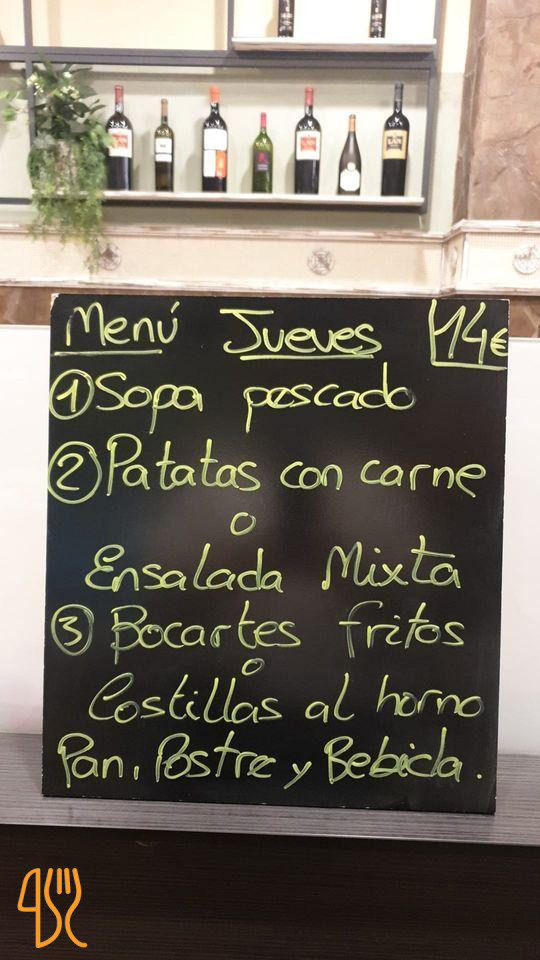 Menú Jueves 14€
① Sopa pescado
② Patatas con carne
o
Ensalada Mixta
③ Bocartes fritos
o
Costillas al horno
Pan, Postre y Bebida.